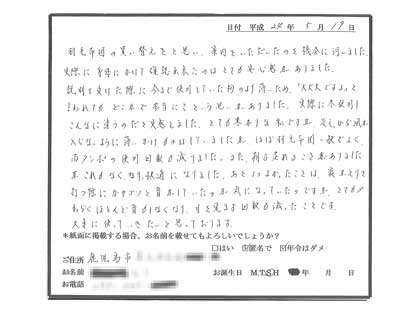 日付 平成 24年 5月 19日
羽毛布団の買い替えをと思い、案内をいただいたのを機会に伺いました。
実際に身体にかけて確認出来たのはとても安心感がありました。
説明を受けた際に今まで使用していた物より薄いため、「大丈夫ですよ」と
言われても どこまで本当にこと、う思いがありました。実際に本使用し
こんなに違うのだと実感しました。とても寒がりな私ですが、足しから風が
入らないように薄いかけものはしていましたが ほぼ羽毛布団一枚でよく、
湯タンポの使用回数も減りました。また、肩が荒れることがありました
が これもなくなり快適になりました。あと1つよかったことは、寝がえりを
打つ際にカサコソと音がしていたのが気になっていたのですが、とても
わらくほとんど音がしなくなり、目を覚ます回数も減ったことです。
大事に使っていきたいと思っております。
*紙面に掲載する場合、お名前を載せてもよろしいでしょうか?
□はい ☑匿名で ☑年令はダメ
ご住所 鹿児島市
お名前 お誕生日 M.T.S.H 年 月 日
お電話